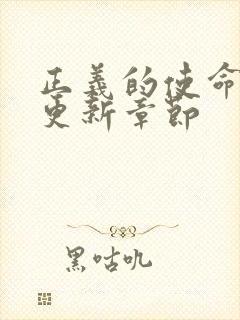 正義的使命
更新章節
黑咕吼